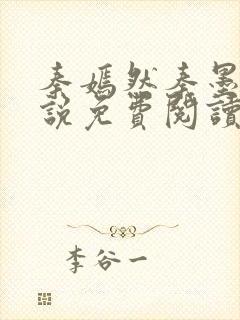 秦嫣然秦墨
說免費閱讀
李谷一